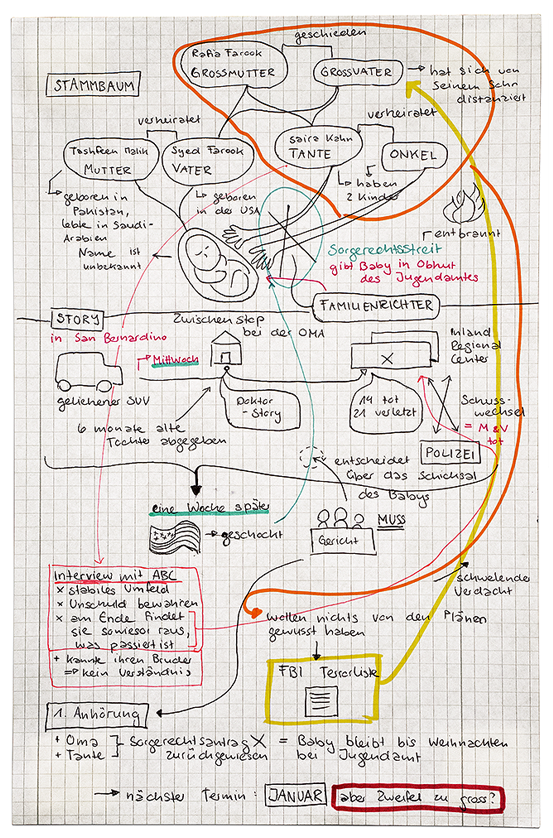 geschieden
Rafia Farook
GROSSMUTTER
GROSSVATER
→ hat sich von
seinem Sohn
distanziert
STAMMBAUM
verheiratet
verheiratet
Tashfeen Malik
MUTTER
Syed Farook
VATER
Saira Kahn
TANTE
ONKEL
↳ haben
2 Kinder
↳ geboren in
Pakistan,
lebte in Saudi-
Arabien
↳ geboren
in des USA
entbrannt
Name ist
unbekannt
Sorgerechtsstreit
gibt Baby in Obhut
des Jugendamtes
FAMILIENRICHTER
STORY
Zwischenstop
bei der OMA
in San Bernardino
Mittwoch
Inland
Regional
Center
geliehener SUV
Doktor-
Story
14 tot
21 verletzt
Schuss-
wechsel
= M & V
tot
6 monate alte
Tochter abgegeben
POLIZEI
entscheidet
über das Schicksal
des Babys
eine Woche später
→ geschockt
MUSS
Gericht
Interview mit ABC
× stabiles Umfeld
× Unschuld bewahren
× am Ende findet
sie sowieso raus,
was passiert ist
+ kannte ihren Bruder
⇒ kein Verständnis
schwelender
Verdacht
wollen nichts von den Plänen
gewusst haben
FBI Terrorliste
1. Anhörung
+ Oma
+ Tante
Sorgerechtsantrag X
zurückgewiesen
= Baby bleibt bis Weihnachten
bei Jugendamt
→ nächster Termin: JANUAR
aber Zweifel zu gross?